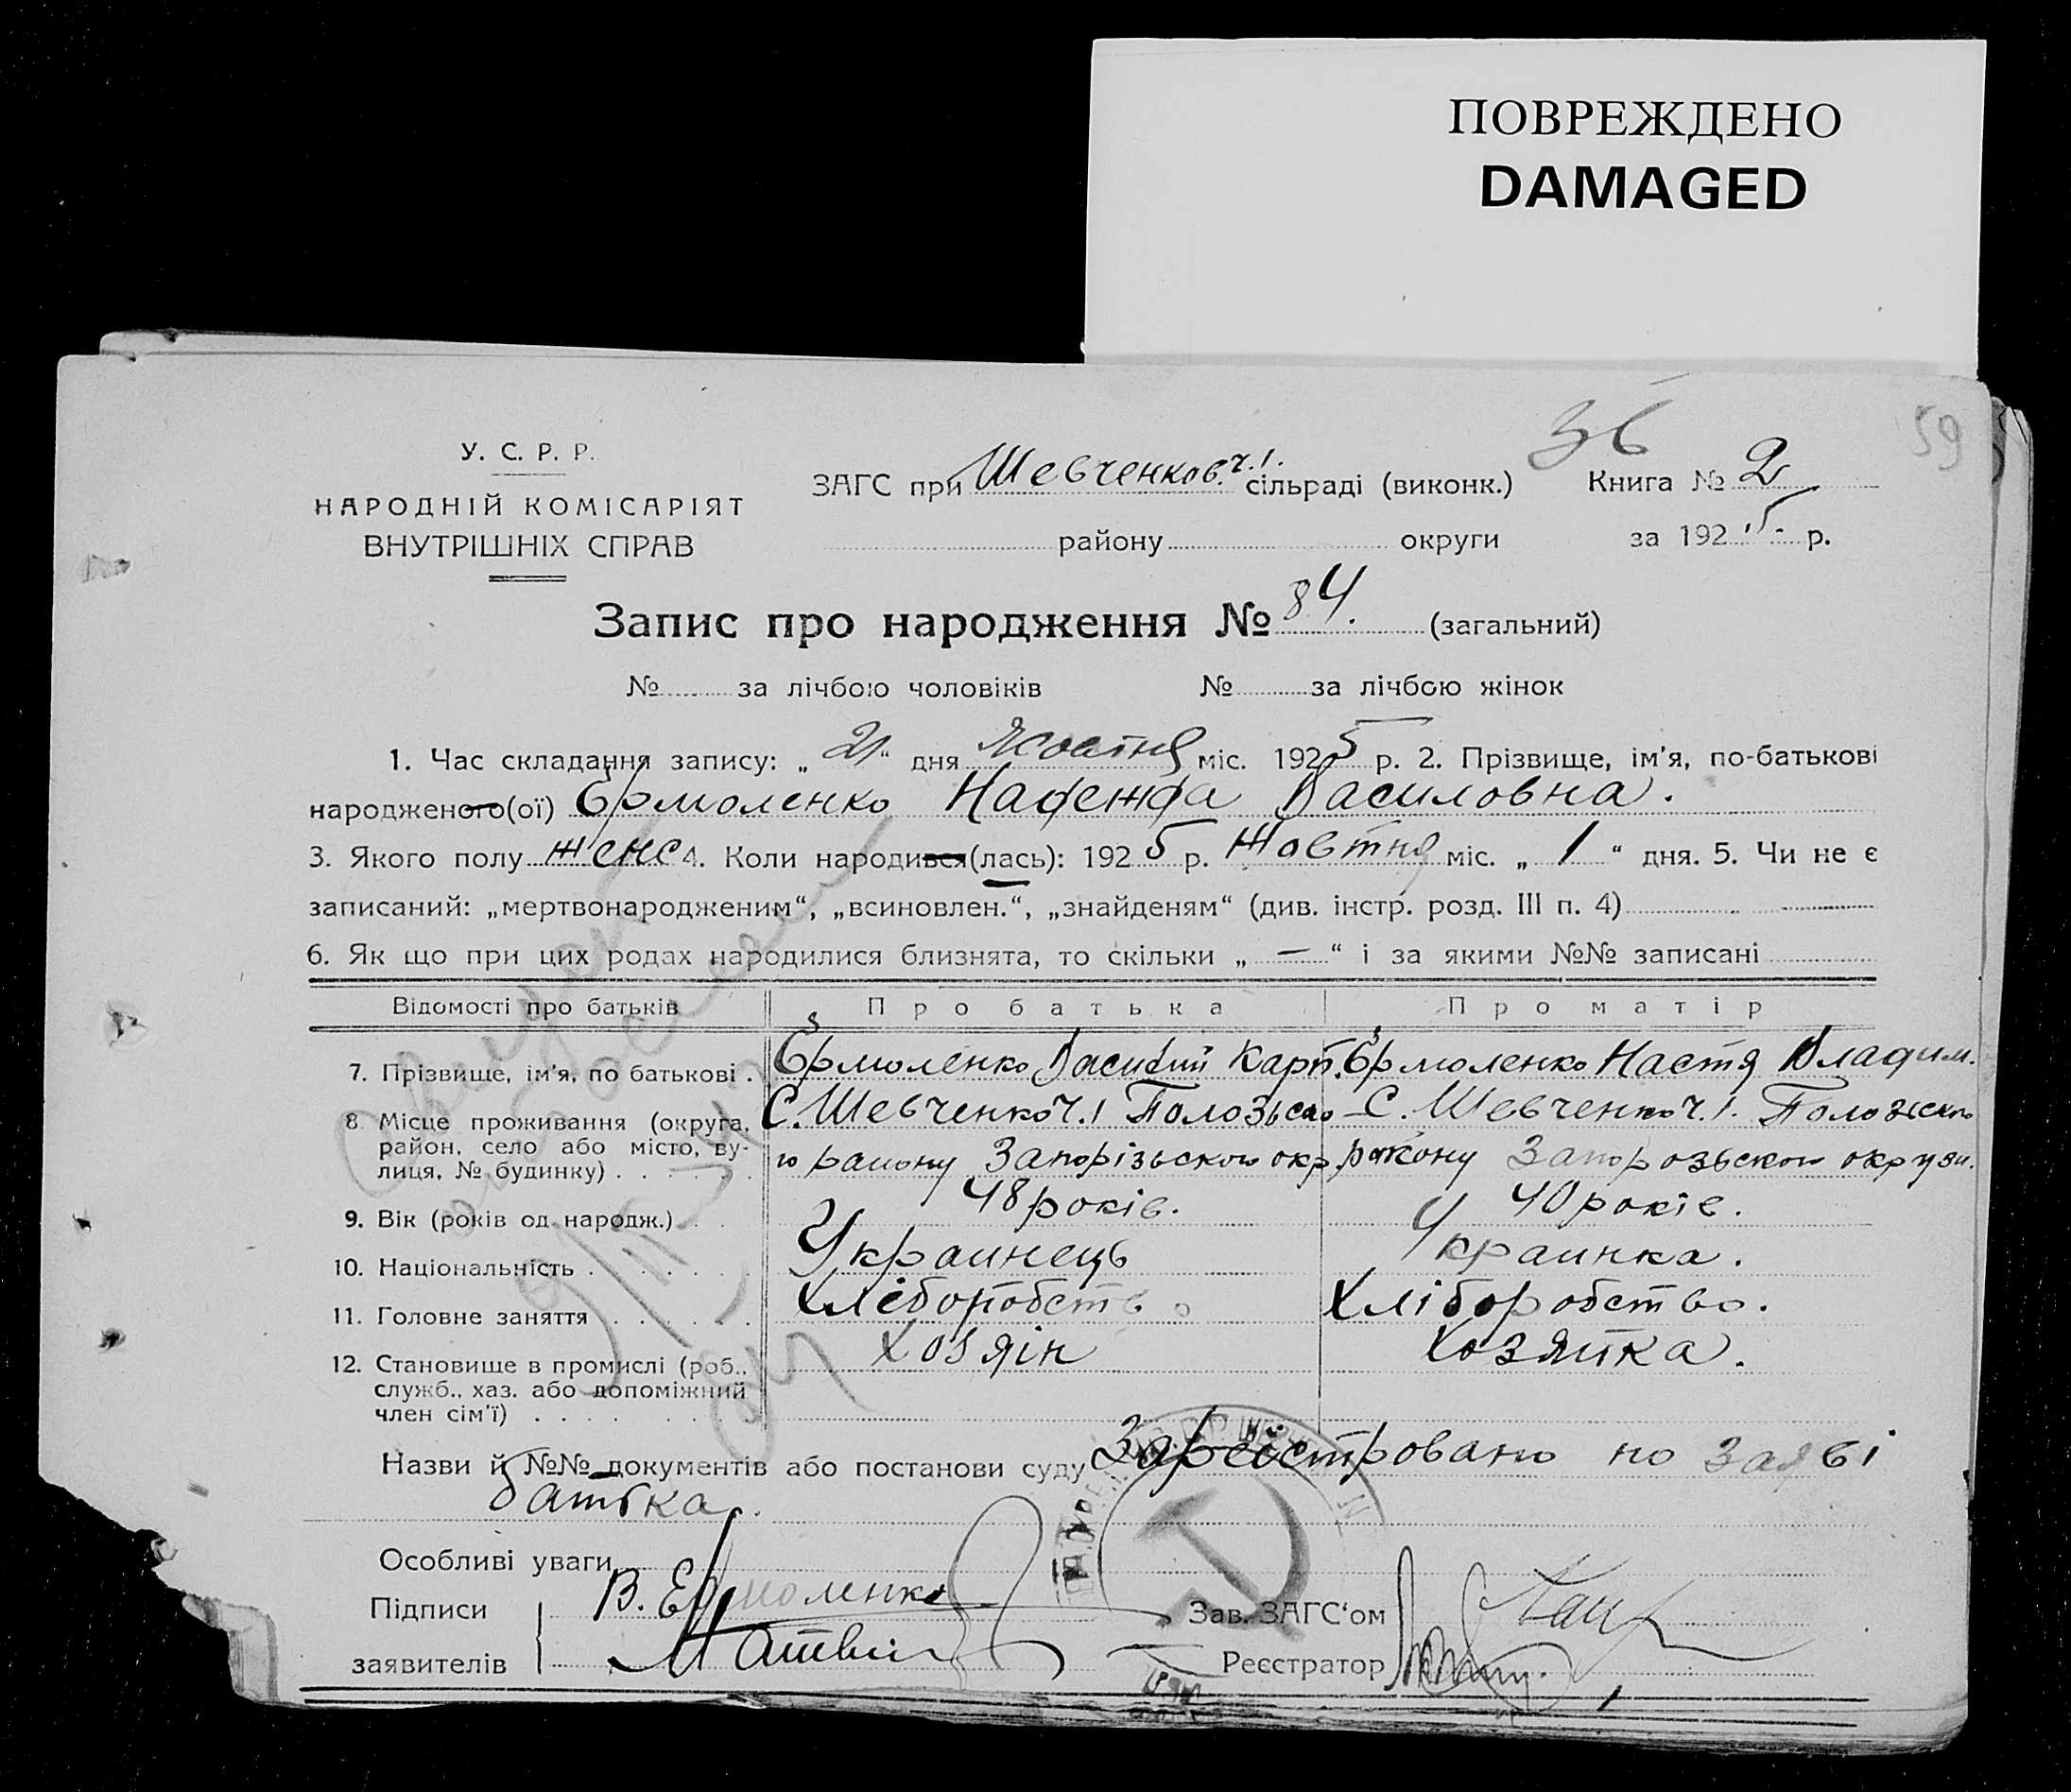 ПОВРЕЖДЕНО
DAMAGED
36
59
У. С. Р. Р.
НАРОДНІЙ КОМІСАРІЯТ
ВНУТРІШНІХ СПРАВ
ЗАГС при Шевченков. ч.1. сільраді (виконк.) Книга № 2
району округи за 1925 р.
Запис про народження № 84. (загальний)
№ за лічбою чоловіків № за лічбою жінок
1. Час складання запису: „21“ дня Жовтня міс. 1925 р. 2. Прізвище, ім'я, по-батькові
народженого(ої) Єрмоленко Надежда Василовна.
3. Якого полу женс 4. Коли народився(лась): 1925 р. Жовтня міс. „1“ дня. 5. Чи не є
записаний: „мертвонародженим“, „всиновлен.“, „знайденям“ (див. інстр. розд. III п. 4)
6. Як що при цих родах народилися близнята, то скільки „—“ і за якими №№ записані
Відомості про батьків Про батька Про матір
7. Прізвище, ім'я, по батькові . Єрмоленко Василий Карп. Єрмоленко Настя Владим.
8. Місце проживання (округа, С. Шевченко ч.1 Пологьско- С. Шевченко ч.1. Пологского
район, село або місто, ву-
лиця, № будинку) . . . . . . го району Запорізьского окр. району Запорозьского округи.
9. Вік (років од народж.) . . 48 років. 40 років.
10. Національність . . . . . Украинець Украинка.
11. Головне заняття . . . . . . Хліборобство Хліборобство.
12. Становище в промислі (роб., Хозяін Хозяйка.
служб., хаз. або допоміжний
член сім'ї) . . . . . .
Назви й №№ документів або постанови суду Зареєстровано по заяві
батька.
Особливі уваги
Підписи В. Ермоленко Зав. ЗАГС'ом
заявителів Матвій Реєстратор